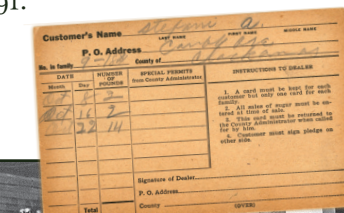 91.
Customer's Name
LAST NAME FIRST NAME MIDDLE NAME
P. O. Address Camp
No. in family County of Clackamas
DATE NUMBER OF POUNDS SPECIAL PERMITS from County Administrator INSTRUCTIONS TO DEALER
Month Day
Oct 8 2
Oct 16 2
22 14
1. A card must be kept for each customer but only one card for each family.
2. All sales of sugar must be entered at time of sale.
3. This card must be returned to the County Administrator when called for by him.
4. Customer must sign pledge on other side.
Signature of Dealer
P. O. Address
Total County (OVER)